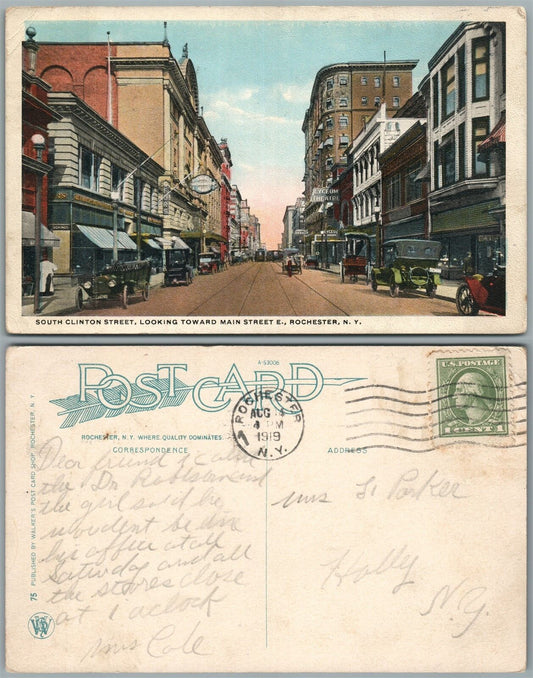 LYCEUM
THEATRE
SOUTH CLINTON STREET, LOOKING TOWARD MAIN STREET E., ROCHESTER, N. Y.
A-53006
POST CARD
ROCHESTER, N. Y. WHERE QUALITY DOMINATES.
CORRESPONDENCE
ADDRESS
75 PUBLISHED BY WALKER'S POST CARD SHOP, ROCHESTER, N. Y.
ROCHESTER
AUG
4 PM
1919
N.Y.
U.S. POSTAGE
1 CENT 1
Dear friend I called
the Dr
the girl said he
wouldent be in
his office at all
Saturday and all
the stores close
at 1 oclock
Mrs Cole
Mrs Parker
Holly
N.Y.